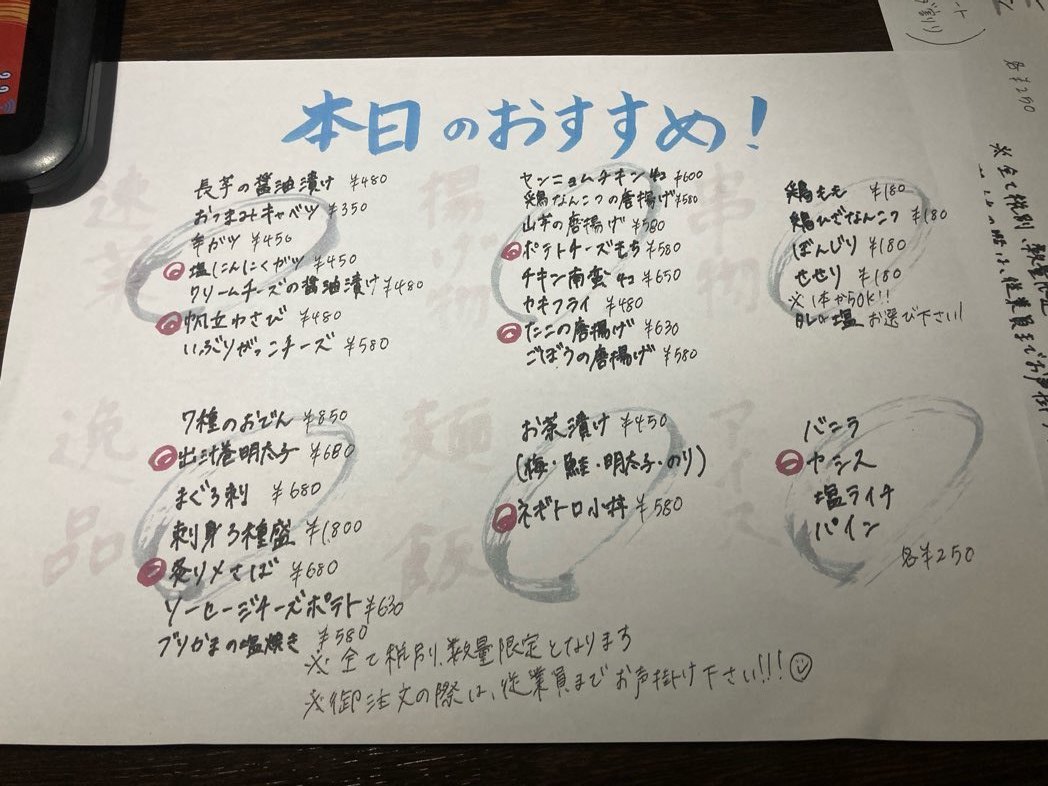 本日のおすすめ!
速菜
長芋の醤油漬け ¥480
おつまみキャベツ ¥350
辛ガツ ¥450
塩にんにくガツ ¥450
クリームチーズの醤油漬け ¥480
帆立わさび ¥480
いぶりがっこチーズ ¥580
揚げ物
ヤンニョムチキン 4コ ¥600
鶏なんこつの唐揚げ ¥580
山芋の唐揚げ ¥580
ポテトチーズもち ¥580
チキン南蛮 4コ ¥650
カキフライ ¥480
たこの唐揚げ ¥630
ごぼうの唐揚げ ¥580
串物
鶏もも ¥180
鶏ひざなんこつ ¥180
ぼんじり ¥180
せせり ¥180
※1本からOK!!
タレor塩 お選び下さい!
逸品
7種のおでん ¥850
出汁巻明太子 ¥680
まぐろ刺 ¥680
刺身3種盛 ¥1800
炙り〆さば ¥680
ソーセージチーズポテト ¥630
ブリかまの塩焼き ¥580
麺飯
お茶漬け ¥450
(梅・鮭・明太子・のり)
ネギトロ小丼 ¥580
アイス
バニラ
カシス
塩ライチ
パイン
各¥250
※全て税別、数量限定となります
※御注文の際は、従業員までお声掛け下さい!!!
各¥250
※全て税別、数量限定